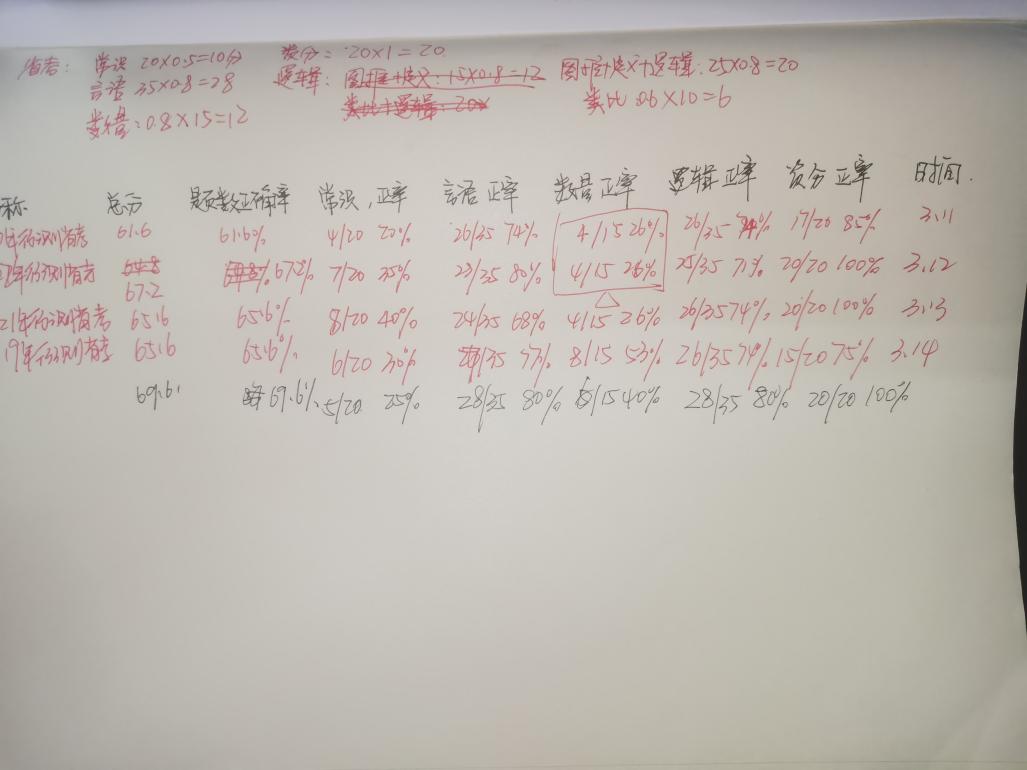 省考: 常识 20×0.5=10分 资分: 20×1=20
言语 35×0.8=28 逻辑: 图推+定义:15×0.8=12 图推+定义+逻辑:25×0.8=20
数量:0.8×15=12 类比+逻辑:20× 类比 0.6×10=6
称 总分 题数正确率 常识,正率 言语 正率 数量 正率 逻辑 正率 资分 正率 时间.
61.6 61.6% 4/20 20% 26/35 74% 4/15 26% 26/35 74% 17/20 85% 3.11
64.8 67.2% 7/20 35% 23/35 80% 4/15 26% 25/35 71% 20/20 100% 3.12
67.2
21年 省考 65.6 65.6% 8/20 40% 24/35 68% 4/15 26% 26/35 74% 20/20 100% 3.13
19年 省考 65.6 65.6% 6/20 30% /35 77% 8/15 53% 26/35 74% 15/20 75% 3.14
69.6 69.6% 5/20 25% 28/35 80% 6/15 40% 28/35 80% 20/20 100%